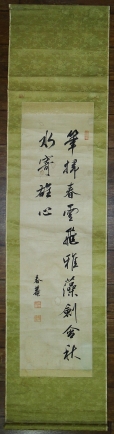 筆揮春雲飛雅藻劍含秋
水寄雄心